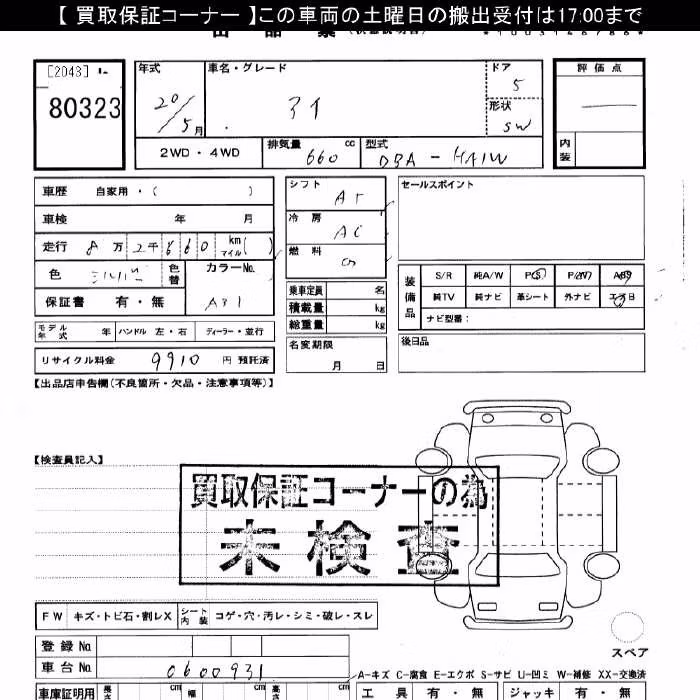 【 買取保証コーナー 】この車両の土曜日の搬出受付は17:00まで
[2043]
80323
年式
20/5月
車名・グレード
アイ
ドア
5
形状
SW
評価点
内装
2WD・4WD
排気量 660 cc
型式 DBA-HA1W
車歴 自家用・( )
車検 年 月
走行 8万2千660 km マイル( )
色 シルバー 色替
カラーNo. A31
保証書 有・無
シフト AT
冷房 AC
燃料
乗車定員 名
積載量 kg
総重量 kg
セールスポイント
装備品
S/R 純A/W P/S P/W ABS
純TV 純ナビ 革シート 外ナビ エアB
ナビ型番:
モデル年式 年 ハンドル 左・右 ディーラー・並行
名変期限 月 日
後日品
リサイクル料金 9910 円 預託済
【出品店申告欄(不良箇所・欠品・注意事項等)】
【検査員記入】
買取保証コーナーの為
未検査
FW キズ・トビ石・割レX シート内装 コゲ・穴・汚レ・シミ・破レ・スレ
スペア
登録No.
車台No. 0600931
A-キズ C-腐食 E-エクボ S-サビ U-凹ミ W-補修 XX-交換済
車庫証明用 長さ cm 幅 cm 高さ cm
工具 有・無 ジャッキ 有・無